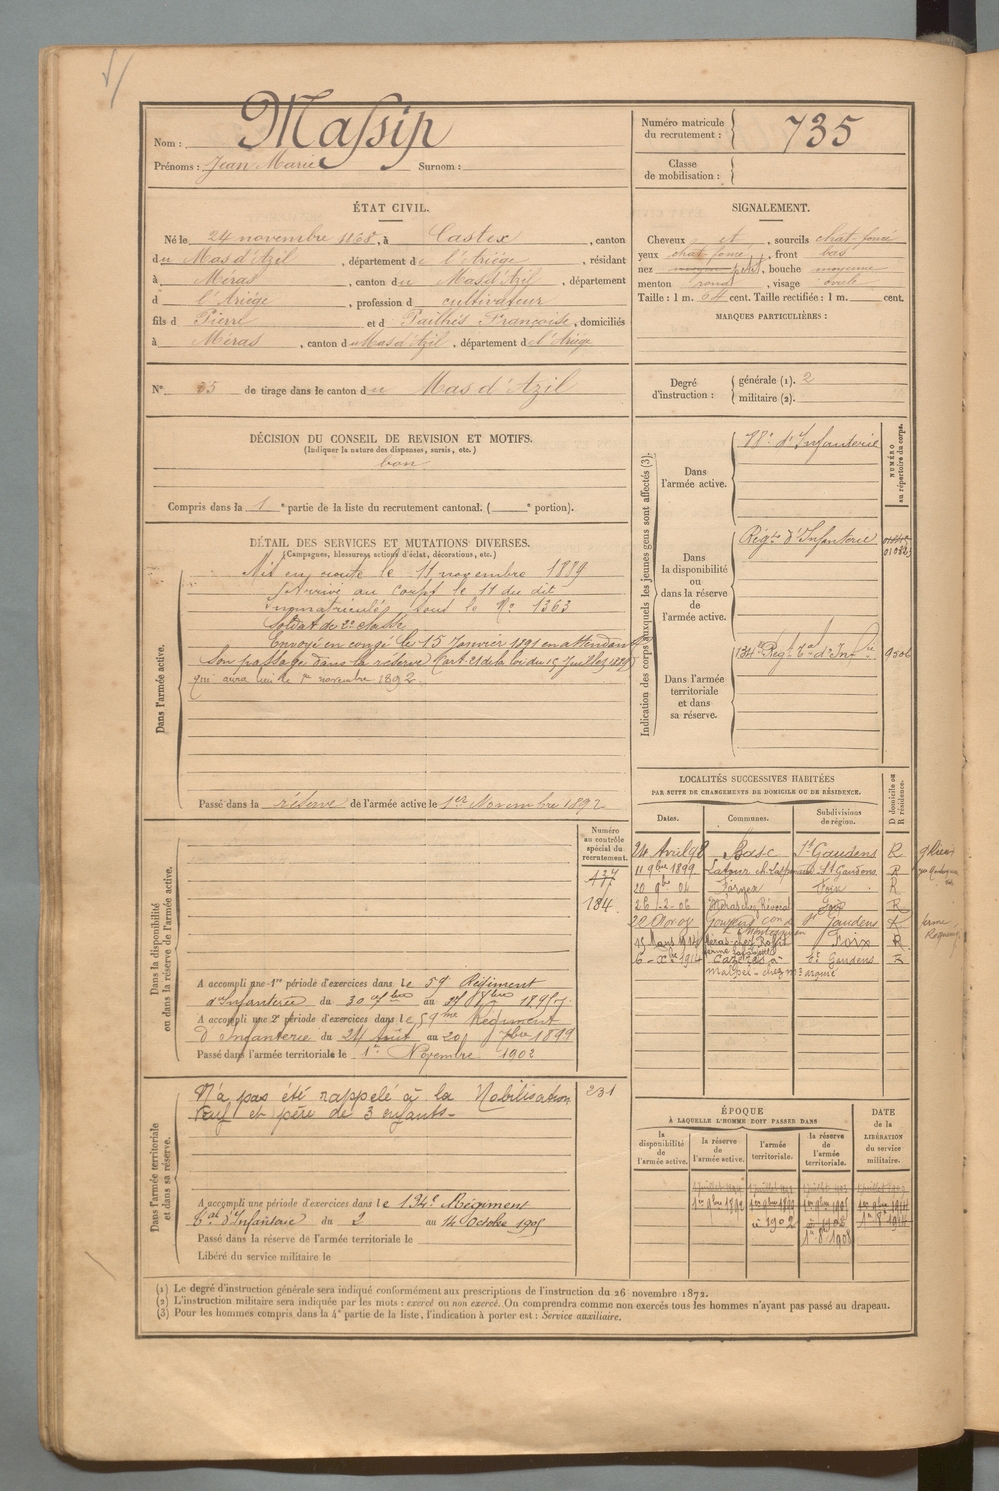 Nom : Massip
Prénoms : Jean Marie Surnom :
Numéro matricule du recrutement : 735
Classe de mobilisation :
ÉTAT CIVIL.
Né le 24 novembre 1868, à Castex, canton
du Mas d'Azil, département de l'Ariège, résidant
à Méras, canton du Mas d'Azil, département
d l'Ariège, profession d cultivateur
fils d Pierre et d Pailhès Françoise, domiciliés
à Méras, canton du Mas d'Azil, département de l'Ariège
N° 35 de tirage dans le canton du Mas d'Azil
SIGNALEMENT.
Cheveux et, sourcils chat. foncé
yeux chat. foncé, front bas
nez petit, bouche moyenne
menton rond, visage ovale
Taille : 1 m. 64 cent. Taille rectifiée : 1 m. cent.
MARQUES PARTICULIÈRES :
Degré d'instruction : générale (1). 2
militaire (2).
DÉCISION DU CONSEIL DE REVISION ET MOTIFS.
(Indiquer la nature des dispenses, sursis, etc.)
bon
Compris dans la 1e partie de la liste du recrutement cantonal. ( e portion).
DÉTAIL DES SERVICES ET MUTATIONS DIVERSES.
(Campagnes, blessures, actions d'éclat, décorations, etc.)
Dans l'armée active.
Mis en route le 11 novembre 1889
Arrivé au corps le 11 du dit
immatriculé sous le N° 1363
Soldat de 2e classe
Envoyé en congé le 15 Janvier 1891 en attendant
son passage dans la réserve (art. 21 de la loi du 15 Juillet 1889)
qui aura lieu le 1er novembre 1892.
Passé dans la réserve de l'armée active le 1er Novembre 1892
Indication des corps auxquels les jeunes gens sont affectés (3).
NUMÉRO au répertoire du corps.
Dans l'armée active.
88e d'Infanterie
Dans la disponibilité ou dans la réserve de l'armée active.
Régt d'Infanterie
Dans l'armée territoriale et dans sa réserve.
134e Régt tal d'Infie
LOCALITÉS SUCCESSIVES HABITÉES
PAR SUITE DE CHANGEMENTS DE DOMICILE OU DE RÉSIDENCE.
Dates. Communes. Subdivisions de région. D domicile ou R résidence.
24 Avril 98 St Gaudens R
11 9bre 1899 St Gaudens R
20 9bre 04 Foix R
26-2-06 Foix R
St Gaudens R
15 Mars 1914 Foix R
6-Xbre 1914 Cazères à St Gaudens R
Dans la disponibilité ou dans la réserve de l'armée active.
Numéro au contrôle spécial du recrutement.
184
A accompli une 1re période d'exercices dans le 59e Régiment
d'Infanterie du 30 au 1895
A accompli une 2e période d'exercices dans le 59me Régiment
D'Infanterie du 24 Août au 20 7bre 1899
Passé dans l'armée territoriale le 1er Novembre 1902
Dans l'armée territoriale et dans sa réserve.
N'a pas été rappelé à la Mobilisation
Veuf et père de 3 enfants-
231
A accompli une période d'exercices dans le 134e Régiment
tal d'Infanterie du 2 au 14 Octobre 1905
Passé dans la réserve de l'armée territoriale le
Libéré du service militaire le
ÉPOQUE
À LAQUELLE L'HOMME DOIT PASSER DANS
la disponibilité de l'armée active. la réserve de l'armée active. l'armée territoriale. la réserve de l'armée territoriale.
DATE de la LIBÉRATION du service militaire.
1er 9bre 1892
(1) Le degré d'instruction générale sera indiqué conformément aux prescriptions de l'instruction du 26 novembre 1872.
(2) L'instruction militaire sera indiquée par les mots : exercé ou non exercé. On comprendra comme non exercés tous les hommes n'ayant pas passé au drapeau.
(3) Pour les hommes compris dans la 4e partie de la liste, l'indication à porter est : Service auxiliaire.